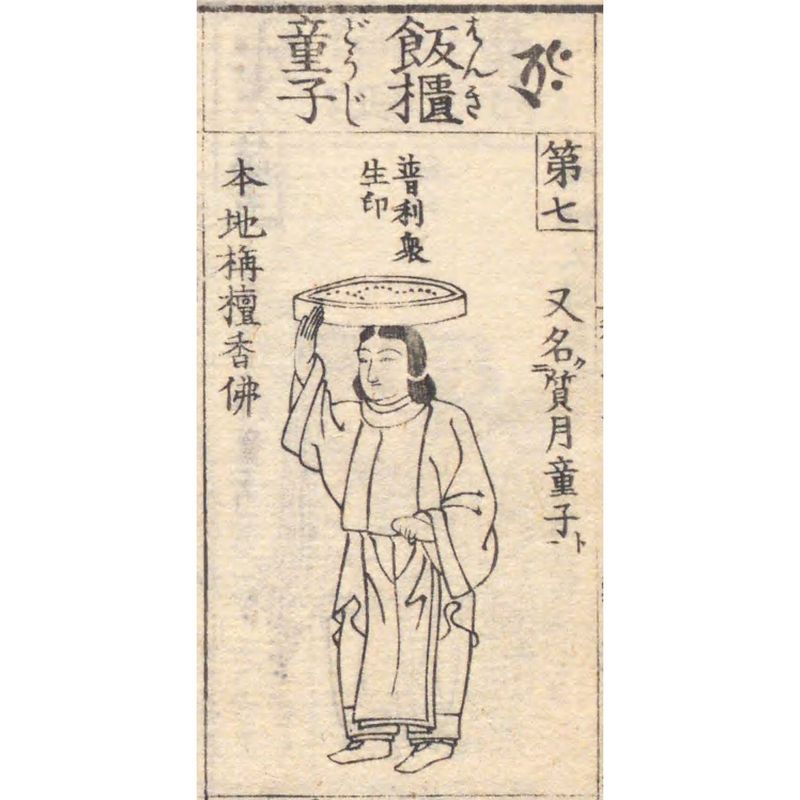 飯櫃
はんき
童子
どうじ
第七
又名ク二質月童子ト一
普利衆
生印
本地栴檀香佛